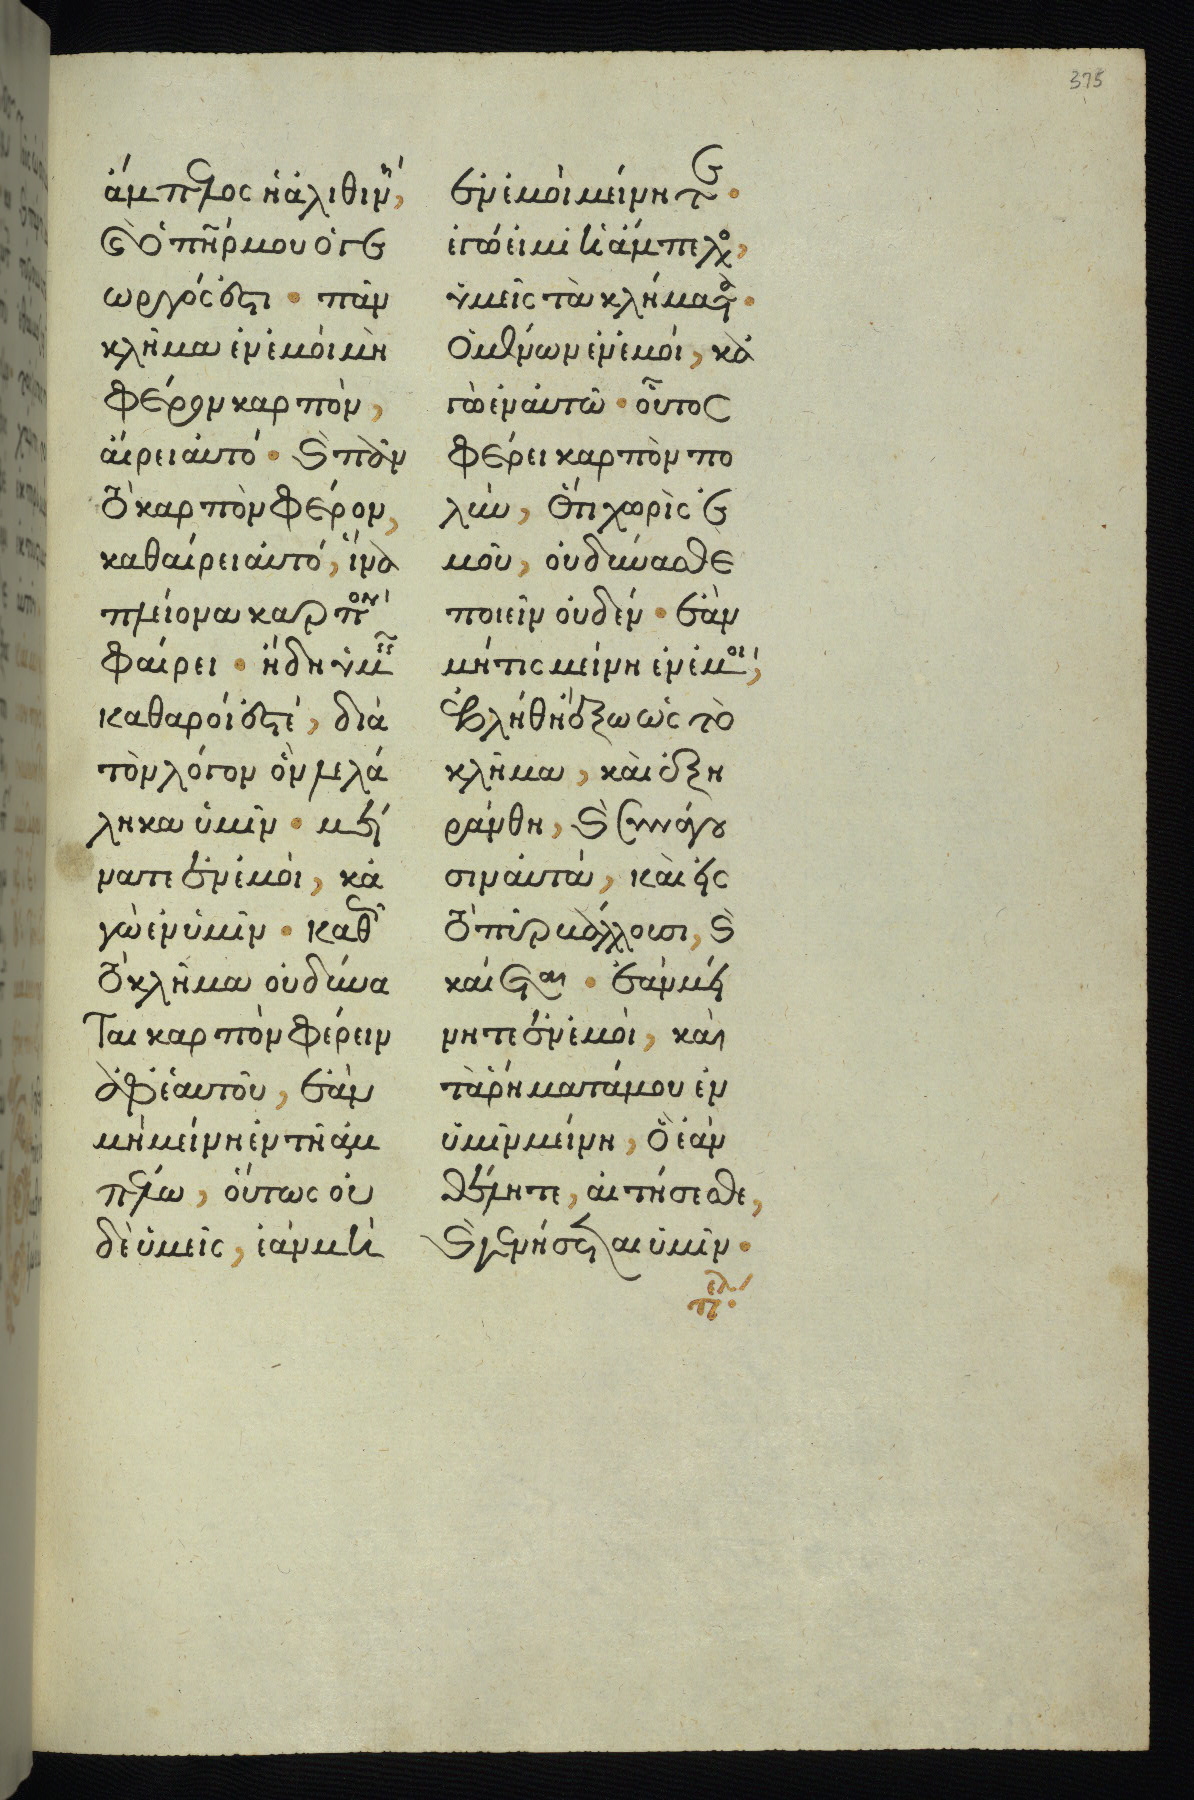 375
ἄμπελος ἡ ἀλιθινή,
καὶ ὁ πῆρ μου ὁ γε
ωργός ἐστι· πᾶν
κλῆμα ἐν ἐμοὶ μὴ
φέρον καρπὸν,
αἴρει αὐτό· καὶ πᾶν
τὸ καρπὸν φέρον,
καθαίρει αὐτό, ἵνα
πλείονα καρπὸν
φαίρει· ἤδη ὑμεῖς
καθαροί ἐστέ, διὰ
τὸν λόγον ὃν λελά
ληκα ὑμῖν· μεί
νατε ἐν ἐμοὶ, κἀ
γὼ ἐν ὑμῖν· καθὼς
τὸ κλῆμα οὐ δύνα
ται καρπὸν φέρειν
ἀφ' ἑαυτοῦ, ἐὰν
μὴ μείνη ἐν τῆ ἀμ
πέλω, οὕτως οὐ
δὲ ὑμεῖς, ἐὰν μὴ
ἐν ἐμοὶ μείνητε·
ἐγώ εἰμι ἡ ἄμπελος,
ὑμεῖς τὰ κλήματα·
ὁ μένων ἐν ἐμοί, κἀ
γὼ ἐν αὐτῶ· οὗτος
φέρει καρπὸν πο
λύν, ὅτι χωρὶς ἐ
μοῦ, οὐ δύνασθε
ποιεῖν οὐδέν· ἐὰν
μή τις μείνη ἐν ἐμοί,
ἐβλήθη ἔξω ὡς τὸ
κλῆμα, καὶ ἐξη
ράνθη, καὶ συνάγου
σιν αὐτά, καὶ εἰς
τὸ πῦρ βάλλουσι, καὶ
καίεται· ἐὰν μεί
νητε ἐν ἐμοὶ, καὶ
τὰ ῥήματά μου ἐν
ὑμῖν μείνη, ὃ ἐὰν
θέλητε, αἰτήσεσθε,
καὶ γενήσεται ὑμῖν·